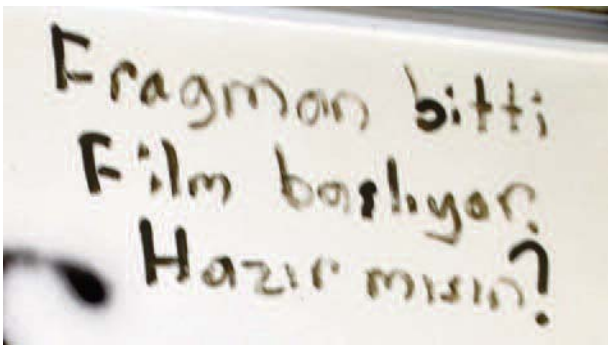 Fragman bitti
Film başlıyor.
Hazır mısın?